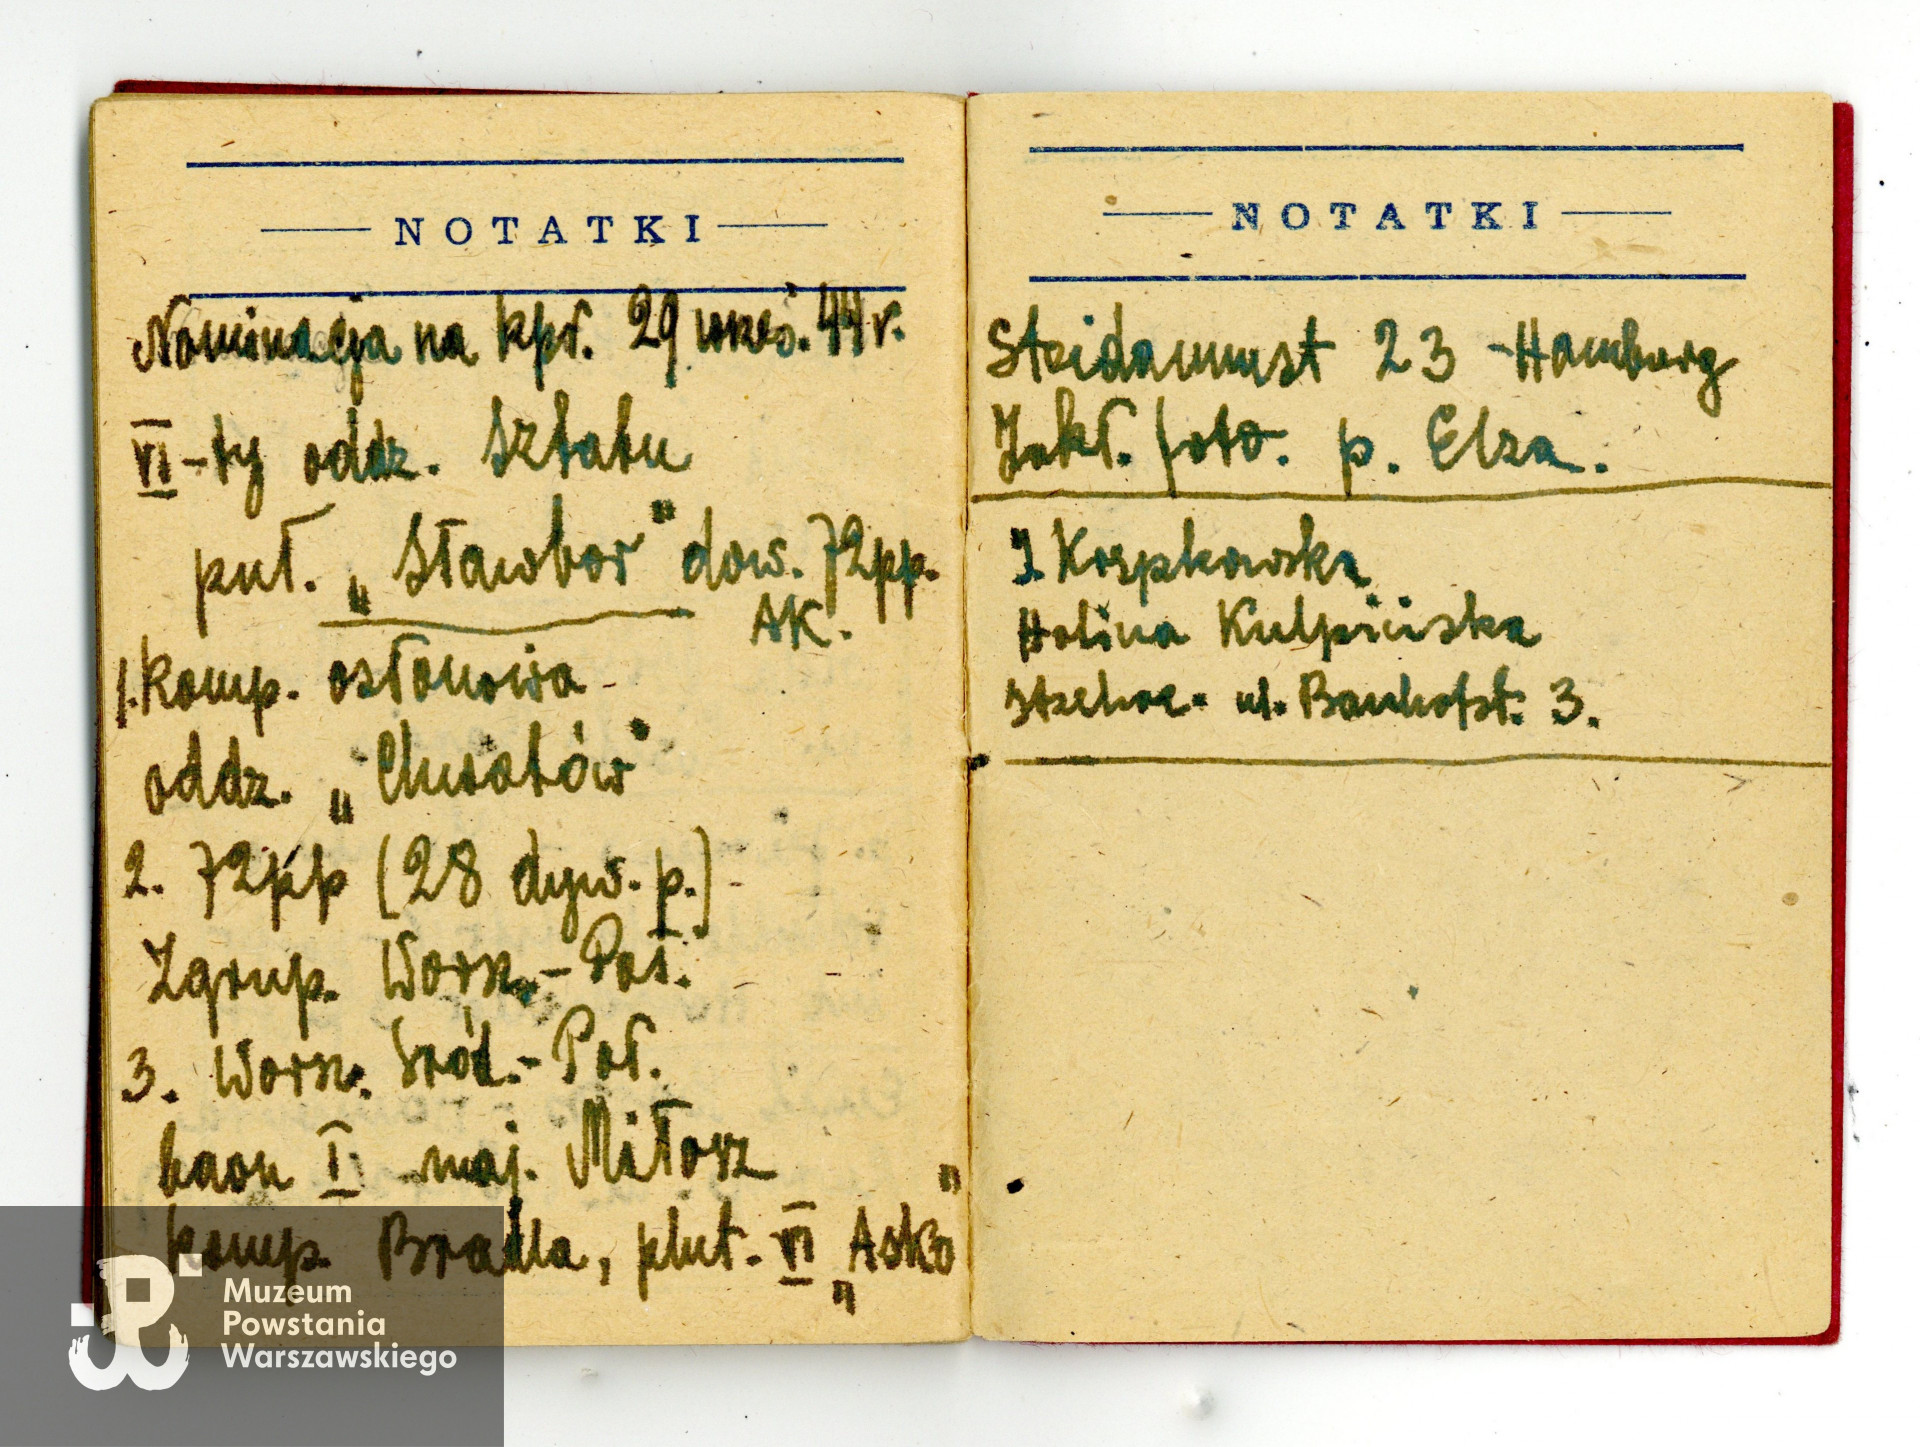 NOTATKI
Nominacja na kpr. 29 wrześ. 44 r.
VI-ty oddz. Sztabu
puł. „Sławbor" dow. 72pp.
AK.
1. komp. osłonowa
oddz. „Chwatów"
2. 72pp (28 dyw. p.)
Zgrup. Warsz.-Poł.
3. Warsz. Śród.-Poł.
baon I maj. Miłosz
komp. Bradla, plut. VI „Asko"
NOTATKI
23 - Hamburg
Zakł. foto. p. Elza.
J. Korpkowska
Halina Kulpińska
ul. Banhofst. 3.
Muzeum
Powstania
Warszawskiego